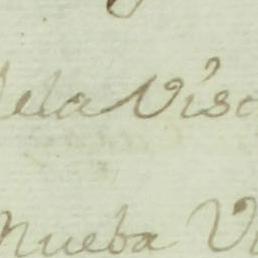 dela Viso
Nueba V